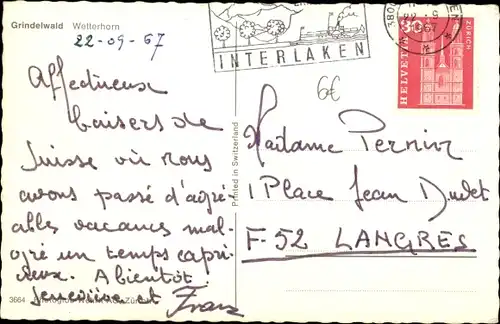 Grindelwald Wetterhorn
22-09-67
INTERLAKEN
HELVETIA
ZÜRICH
6€
Affectueux
baisers de
Suisse où nous
avons passé d'agré-
ables vacances mal-
gré un temps capri-
cieux. A bientôt
Geneviève et Franz
Printed in Switzerland
Madame Pernin
1 Place Jean Duvet
F-52 LANGRES
3664